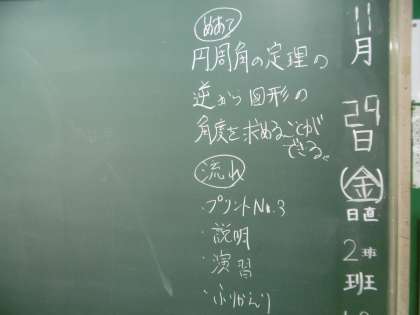 めあて
円周角の定理の
逆から図形の
角度を求めることが
できる。
流れ
・プリントNo.3
・説明
・演習
・ふりかえり
11月
29日
(金)
日直
2班
班